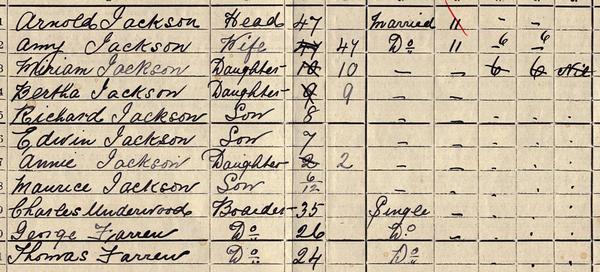 1 Arnold Jackson Head 47 Married 11 – –
2 Amy Jackson Wife 47 47 Do 11 6 6
3 Miriam Jackson Daughter 10 10 – – 6 6 Nil
Bertha Jackson Daughter 9 9 – – .
5 Richard Jackson Son 8 – – . . .
6 Edwin Jackson Son 7 – – . . .
7 Annie Jackson Daughter 2 2 – – . . .
8 Maurice Jackson Son 6/12 – – . . .
9 Charles Underwood Boarder 35 Single – . . .
George Farren Do 26 Do – . . .
Thomas Farren Do 24 Do . . .